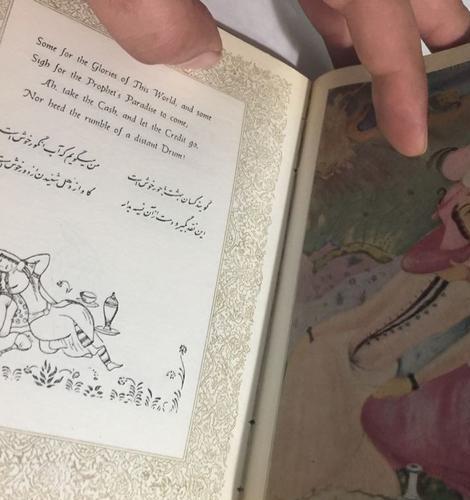 Some for the Glories of This World, and some
Sigh for the Prophet's Paradise to come;
Ah, take the Cash, and let the Credit go,
Nor heed the rumble of a distant Drum!
گویند کسان بهشت با حور خوش است
من میگویم که آب انگور خوش است
این نقد بگیر و دست از آن نسیه بدار
کاواز دهل شنیدن از دور خوش است